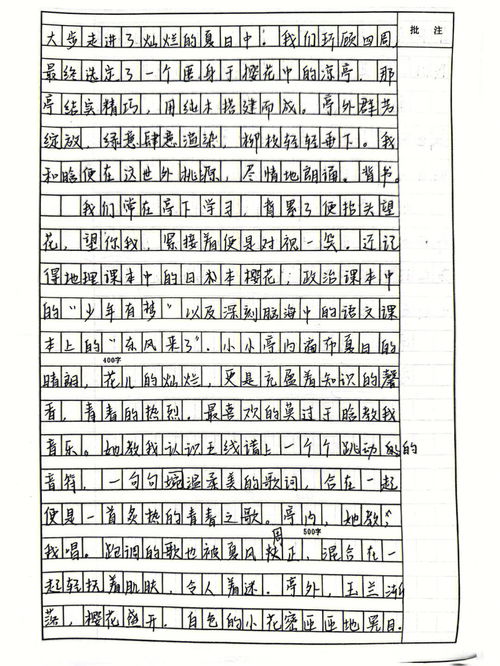 批注
大步走进了灿烂的夏日中。我们环顾四周,
最终选定了一个匿身于樱花中的凉亭,那
亭结实精巧,用纯木搭建而成。亭外群芳
绽放,绿意肆意渲染,柳枝轻轻垂下。我
和晗便在这世外桃源,尽情地朗诵。背书。
我们常在亭下学习,背累了便抬头望
花,望你我,紧接着便是对视一笑。还记
得地理课本中的日本樱花;政治课本中
的“少年有梦”以及深刻脑海中的语文课
本上的“东风来了”。小小亭内满布夏日的
400字
晴朗,花儿的灿烂,更是充盈着知识的馨
香,青春的热烈。最喜欢的莫过于晗教我
音乐。她教我认识五线谱上一个个跳动的
音符,一句句温柔美的歌词,合在一起
便是一首炙热的青春之歌。亭内,她教,
500字
我唱。跑调的歌也被夏风纠正,混合在一
起轻抚着肌肤,令人着迷。亭外,玉兰渐
落,樱花盛开,白色的小花密密匝匝地晃目。